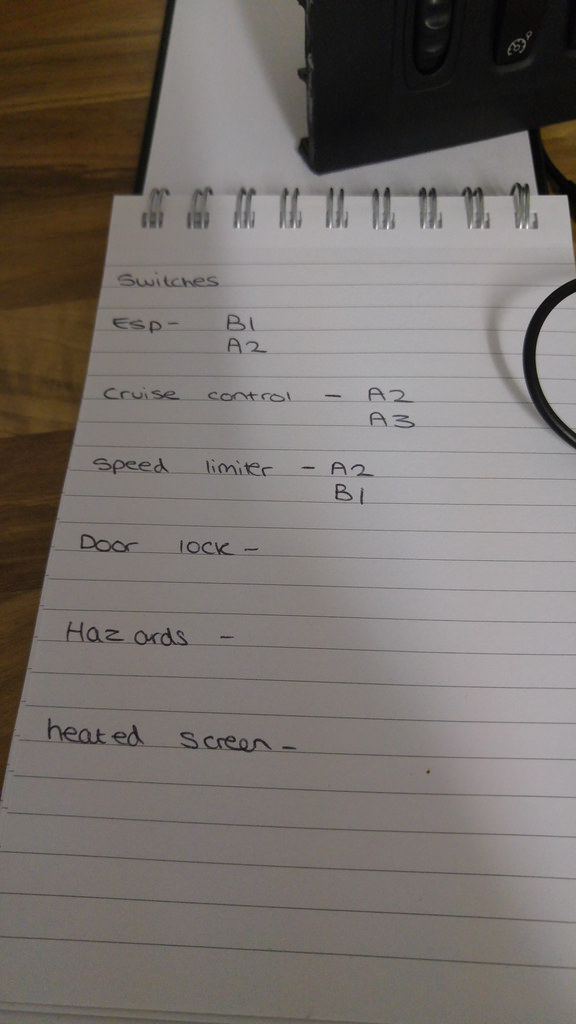 Switches
ESP- B1
A2
Cruise control - A2
A3
Speed limiter - A2
B1
Door lock -
Hazards -
heated screen -